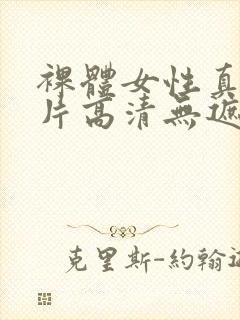 裸體女性真
片高清無遮
克里斯-約翰遜